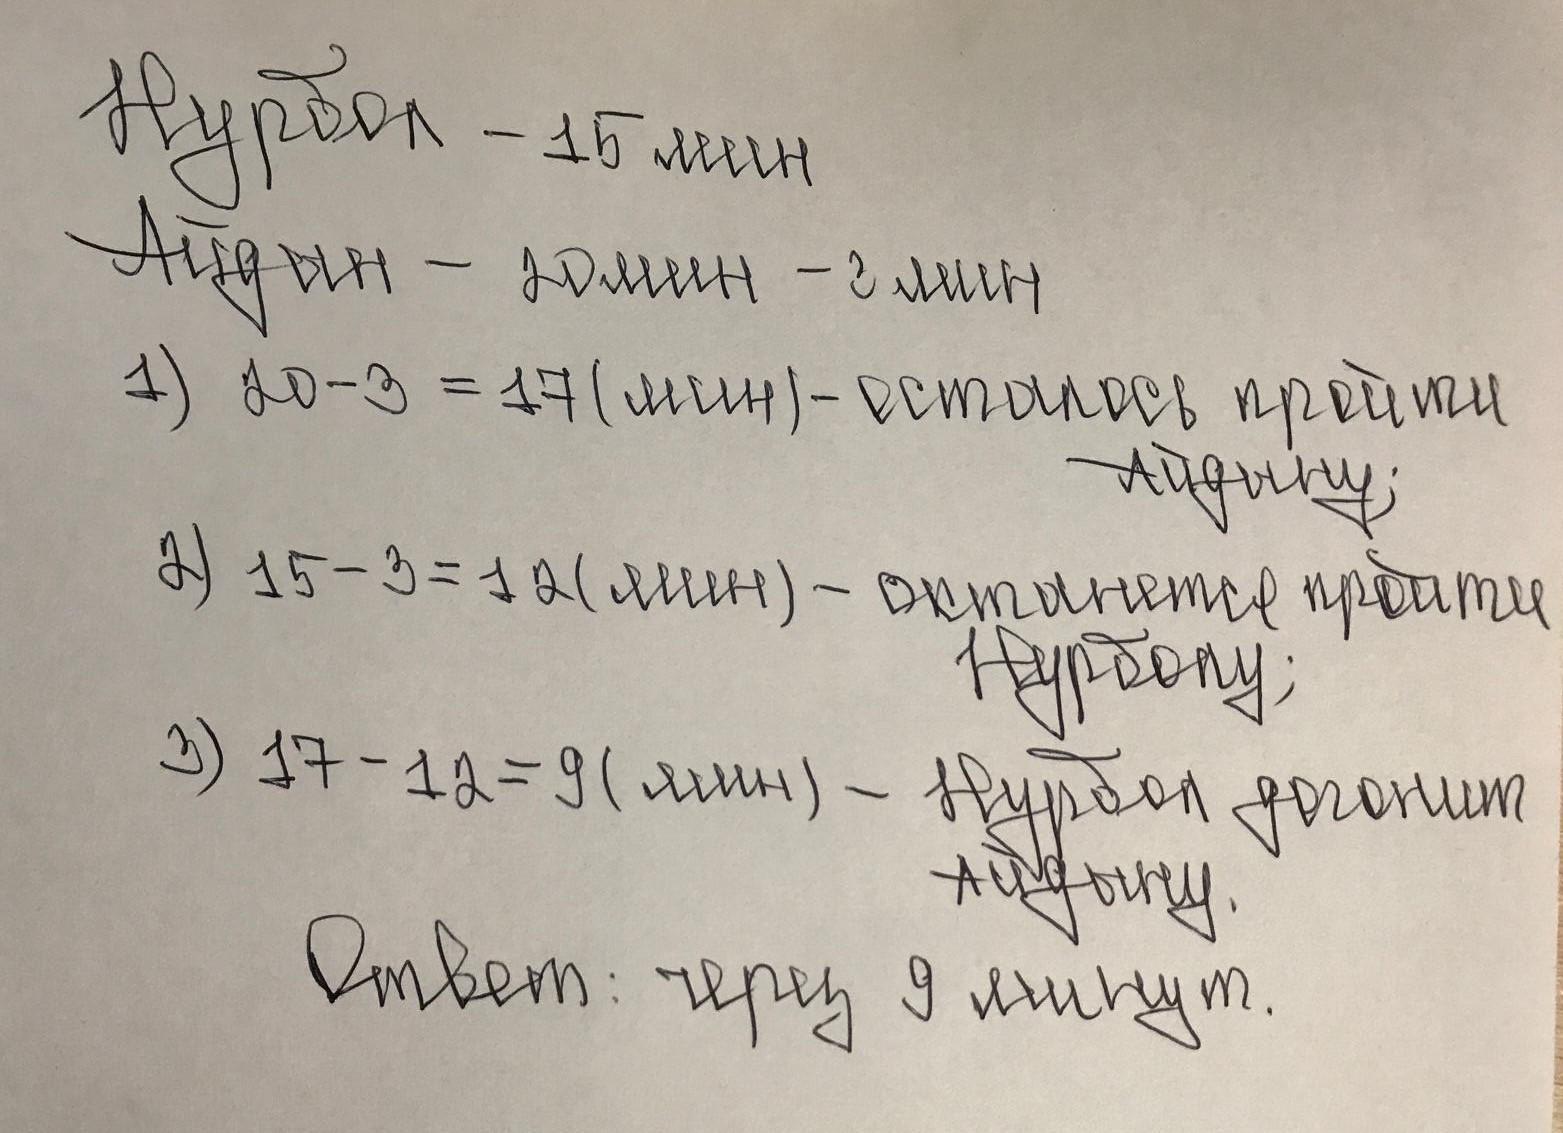 Нурбол – 15 мин
Айдын – 20мин – 3 мин
1) 20-3 = 17(мин)- осталось пройти
Айдыну;
2) 15-3=12(мин) – останется пройти
Нурболу;
3) 17-12=9(мин) – Нурбол догонит
Айдыну.
Ответ: через 9 минут.